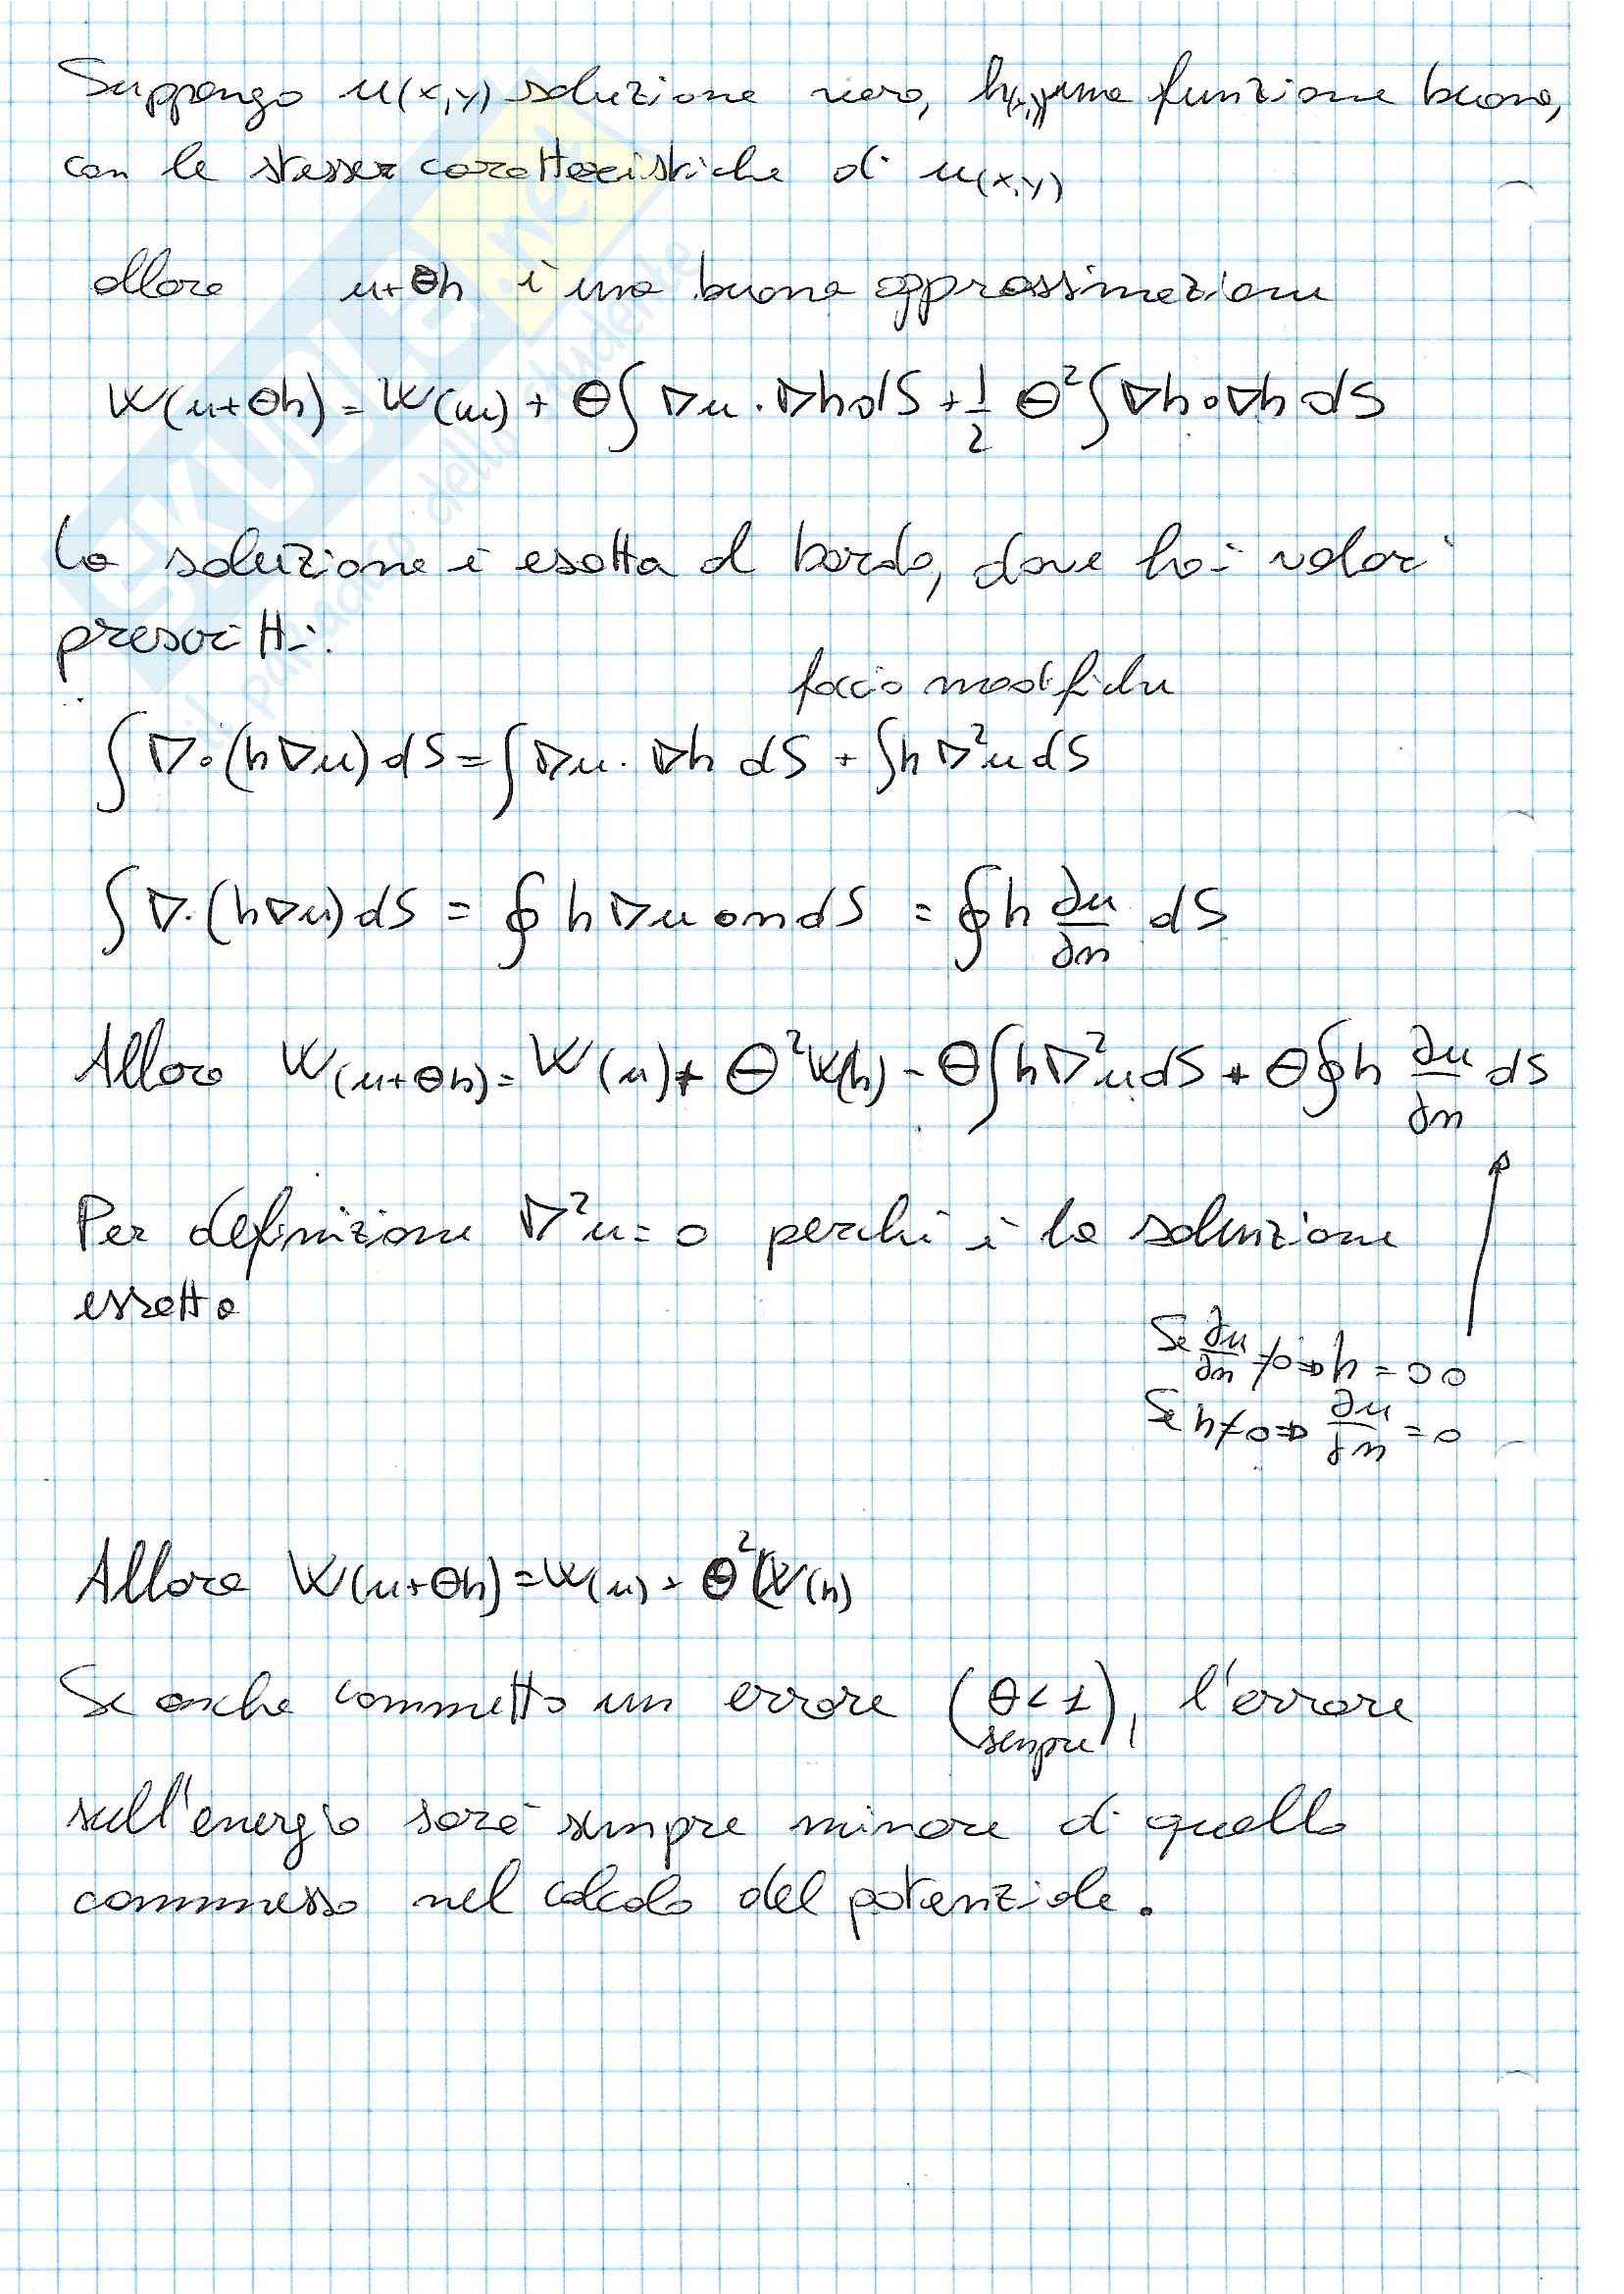 Suppongo u(x,y) soluzione vera, h(x,y) una funzione buona,
con le stesse caratteristiche di u(x,y)
allora u+θh è una buona approssimazione
W(u+θh) = W(u) + θ∫∇u·∇h dS + 1/2 θ²∫∇h∘∇h dS
La soluzione è esatta al bordo, dove ho i valori
prescritti.
faccio modifiche
∫∇·(h∇u)dS = ∫∇u·∇h dS + ∫h∇²u dS
∫∇·(h∇u)dS = ∮h∇u∘n dS = ∮h ∂u/∂n dS
Allora W(u+θh) = W(u) + θ²W(h) - θ∫h∇²u dS + θ∮h ∂u/∂n dS
Per definizione ∇²u=0 perché è la soluzione
essatta
Se ∂u/∂n ≠0 ⇒ h = 0
Se h≠0 ⇒ ∂u/∂n = 0
Allora W(u+θh) = W(u) + θ²W(h)
Se anche commetto un errore (θ<1 sempre), l'errore
sull'energia sarà sempre minore di quello
commesso nel calcolo del potenziale.
SKUOLA.net
il paradiso dello studente